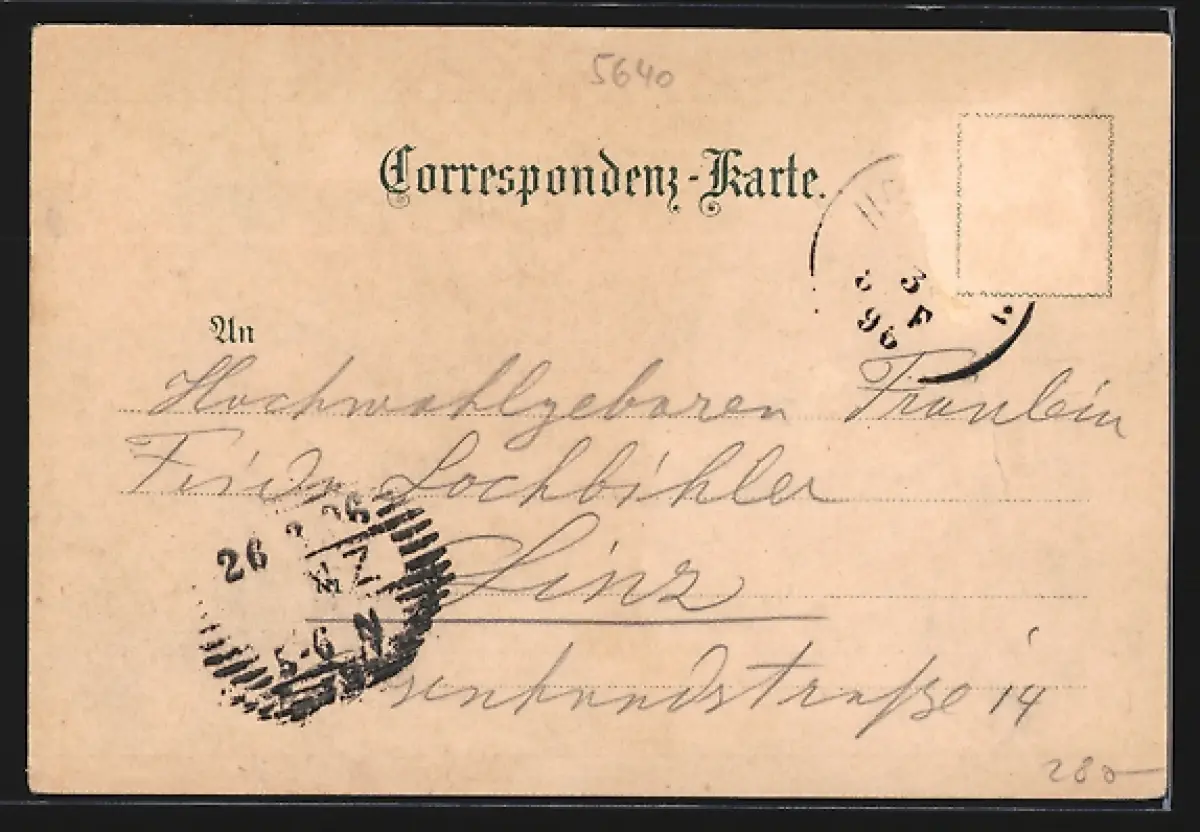 5640
Correspondenz-Karte.
3
96 F
An
Hochwohlgeboren Fräulein
Lochbihler
26
NZ
5-6 N
Linz
straße 14
280